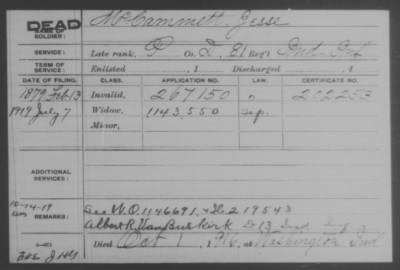 DEAD
NAME OF SOLDIER: McCammett, Jesse
SERVICE: Late rank, P Co. I, 81 Reg't Ind. Inf
TERM OF SERVICE: Enlisted , 1 Discharged , 1
DATE OF FILING. CLASS. APPLICATION NO. LAW. CERTIFICATE NO.
1879 Feb 13 Invalid, 267150 202253
1919 July 7 Widow, 1143,550
Minor,
ADDITIONAL SERVICES:
10-14-19
REMARKS: See W.O. 1146691, 219543
Albert R. Van Buskirk 13 Ind
Died Oct 1, 1916, at Washington Ind